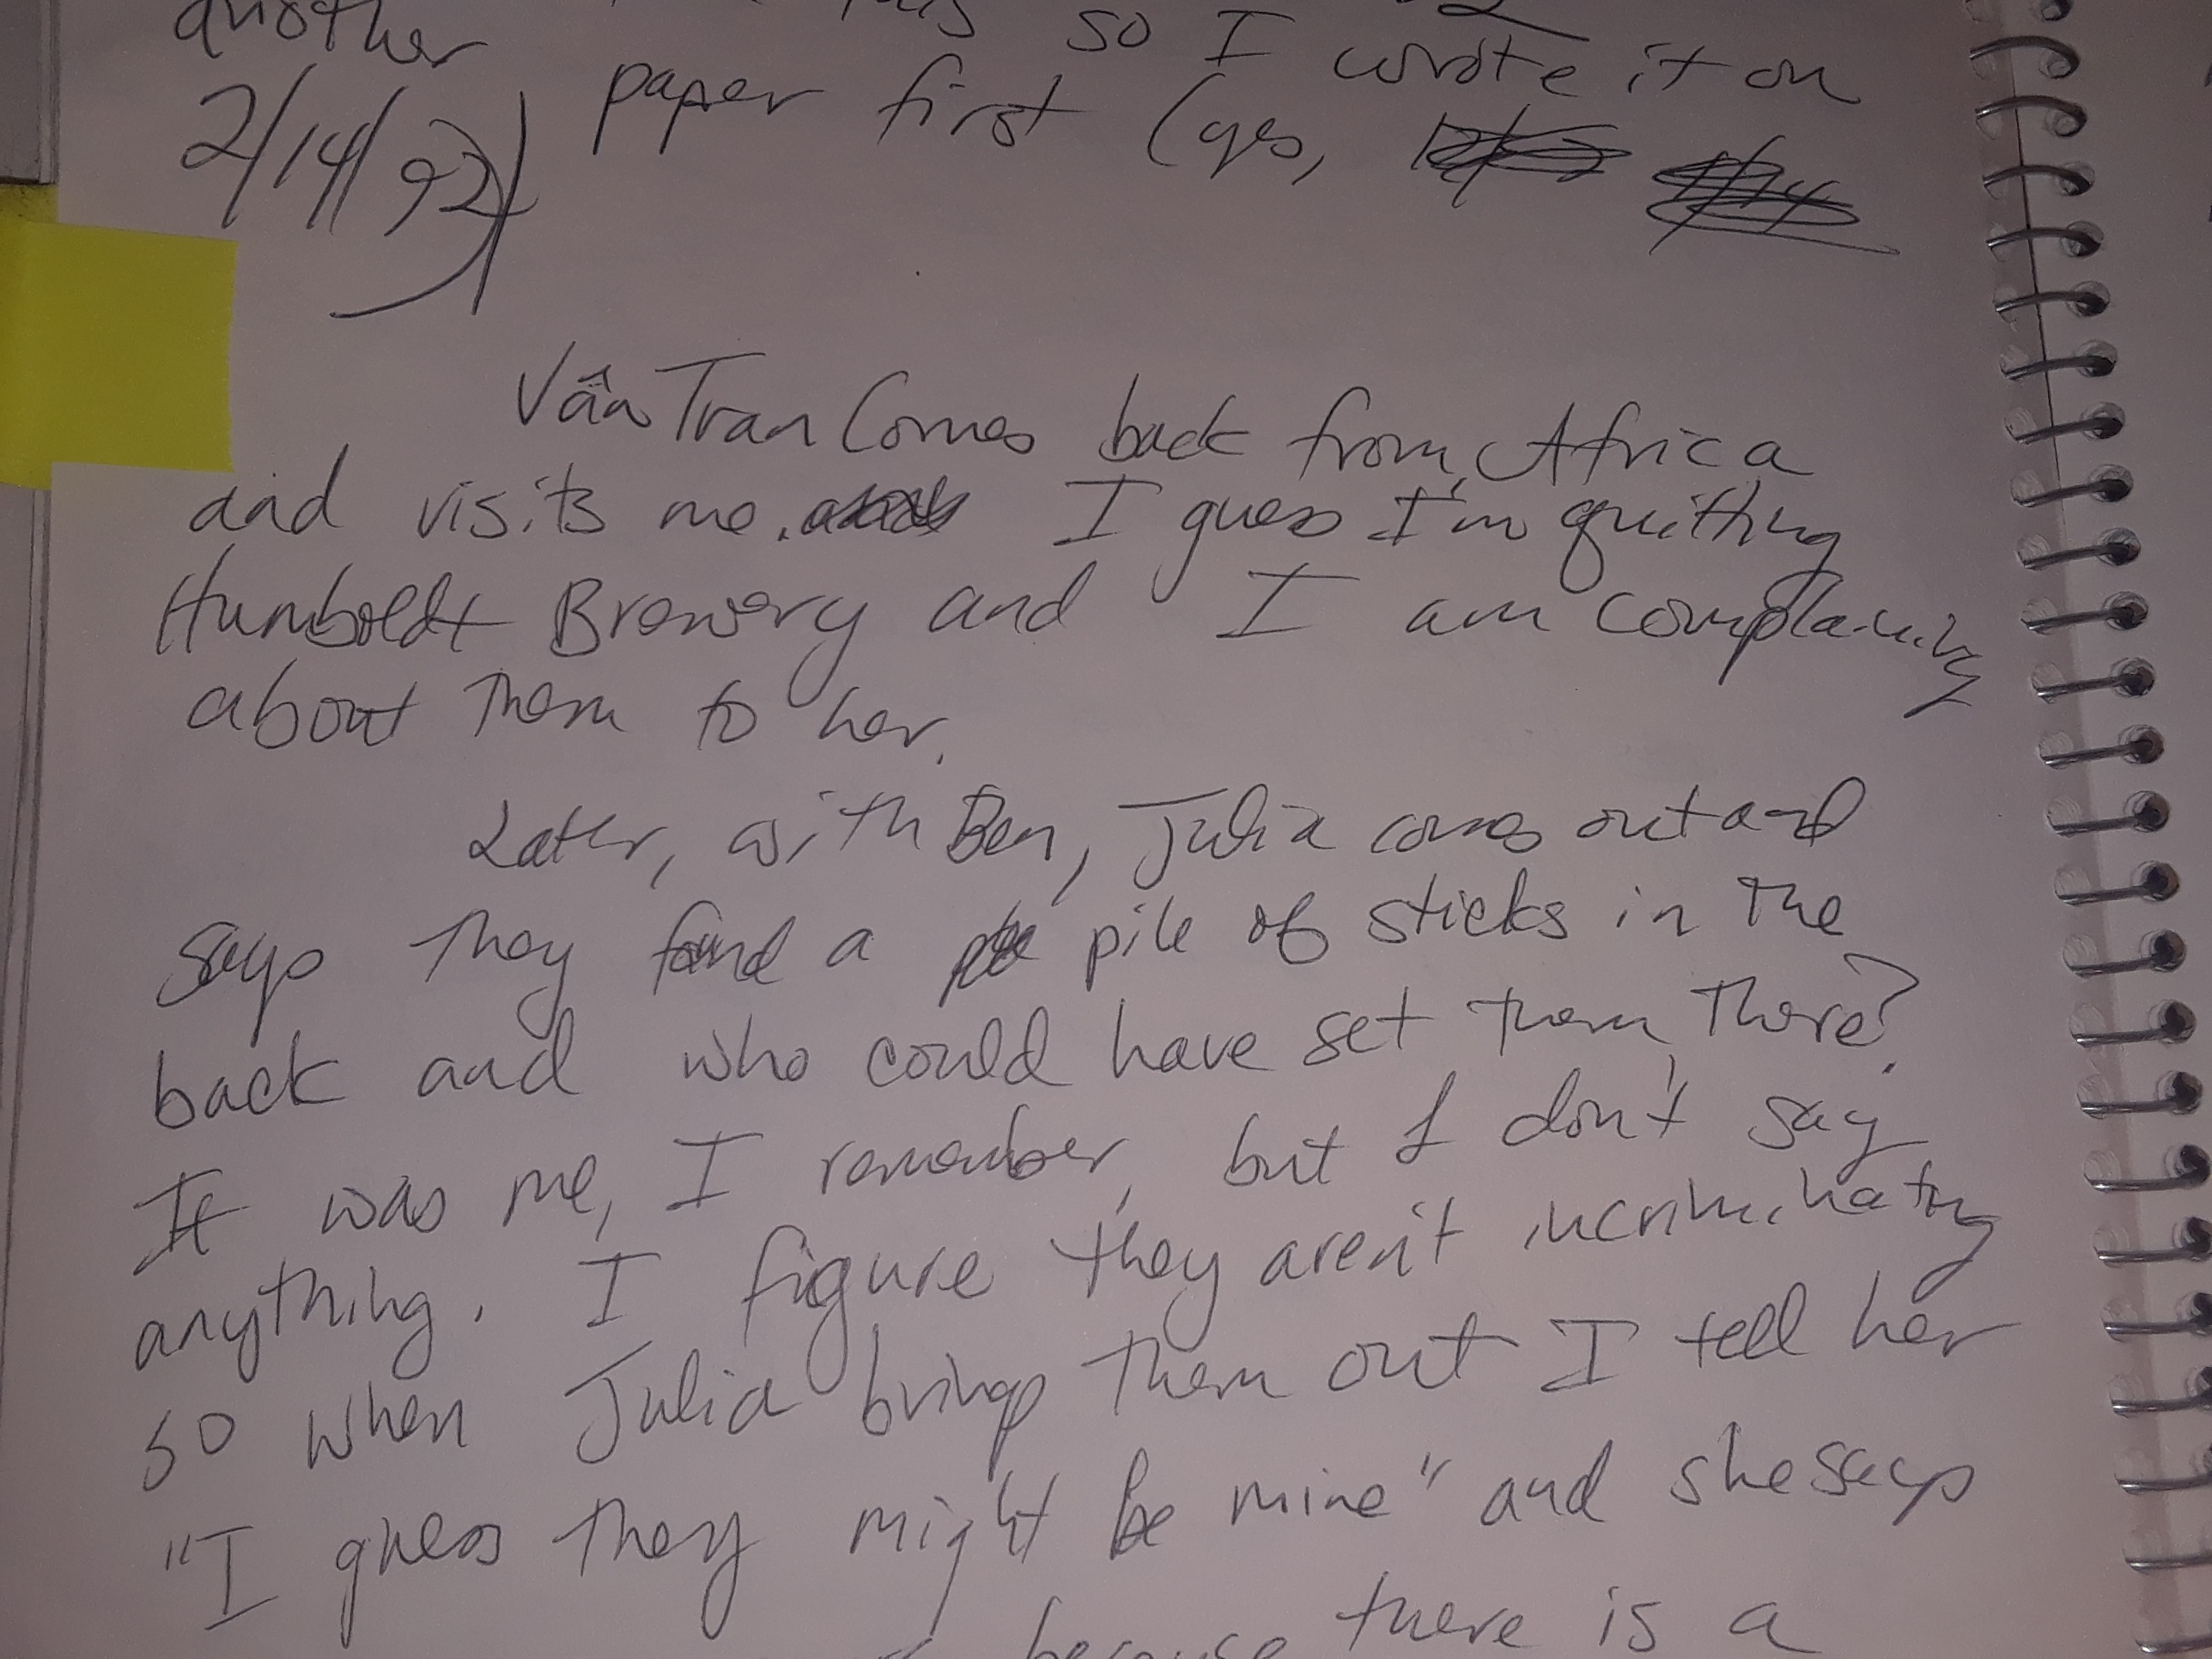 so I wrote it on
another paper first (yes,
2/14/92)
Vân Tran Comes back from Africa
and visits me. I guess I'm quitting
Humboldt Brewery and I am complaining
about them to her.
Later, with Ben, Julia comes out and
says they found a pile of sticks in the
back and who could have set them there?
It was me, I remember, but I don't say
anything. I figure they aren't incriminating
so when Julia brings them out I tell her
"I guess they might be mine" and she says
because there is a